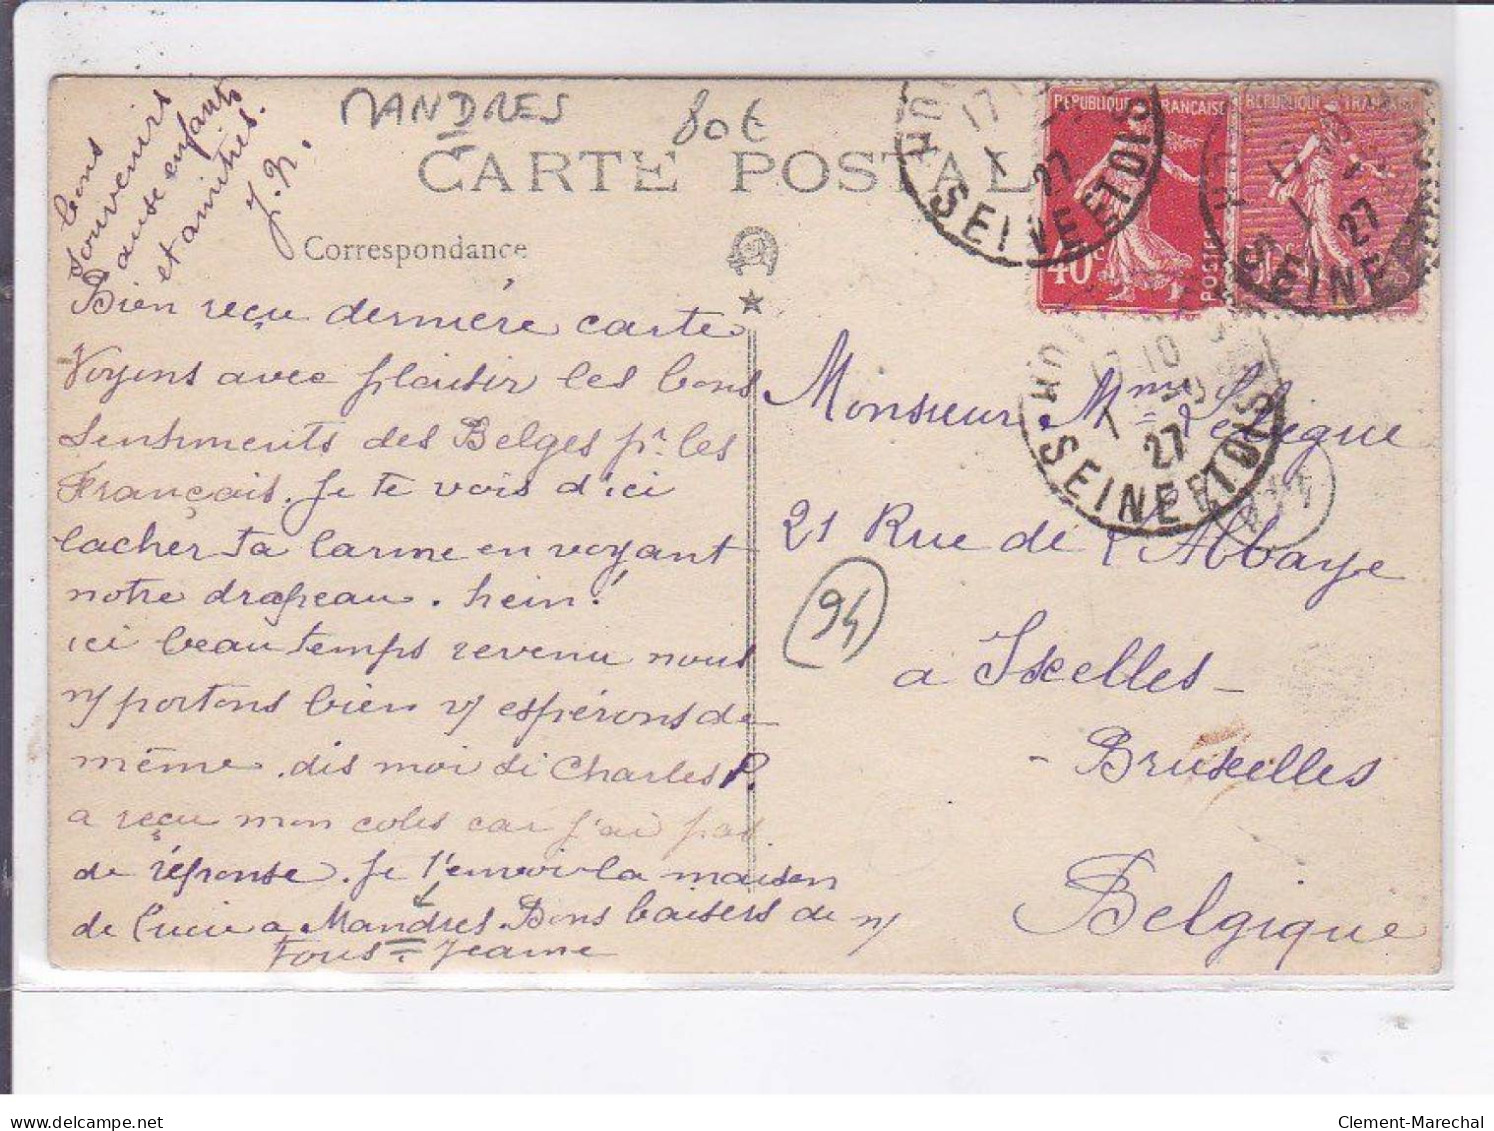 MANDRES
80€
CARTE POSTALE
Correspondance
bons
souvenirs
aux enfants
et amitiés.
J. N.
Bien reçu dernière carte
Voyons avec plaisir les bons
sentiments des Belges pr les
Français. Je te vois d'ici
lacher ta larme en voyant
notre drapeau. hein!
ici beau temps revenu nous
n/ portons bien n/ espérons de
même. dis moi si Charles P.
a reçu mon colis car j'ai pas
de réponse. Je t'envoi la maison
de Lucie a Mandres. Bons baisers de n/
Tous. Jeanne
REPUBLIQUE FRANÇAISE
40c
POSTES
REPUBLIQUE FRANÇAISE
17
1
27
SEINE ET OISE
27
SEINE
10
1
27
SEINE ET OISE
Monsieur Mme
21 Rue de l'Abbaye
a Ixelles -
- Bruxelles
Belgique
94
delcampe.net
Clement-Marechal